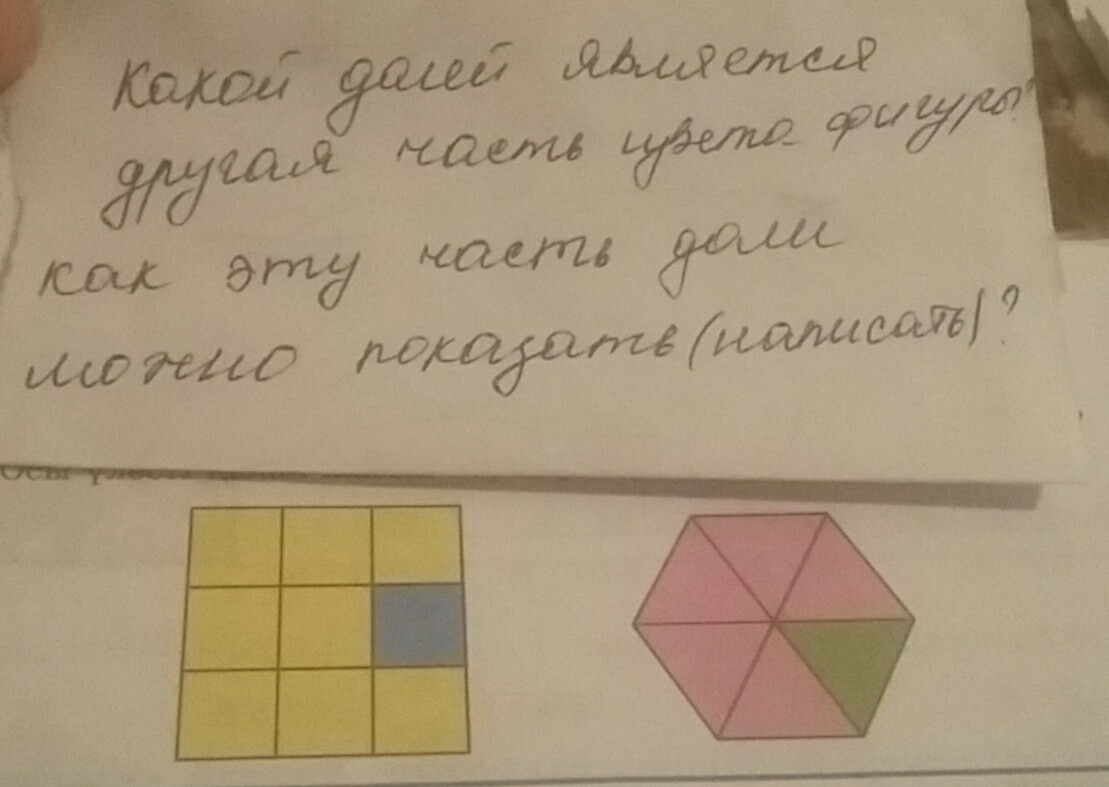 Какой долей является
другая часть цвета фигуры?
как эту часть доли
можно показать (написать)?